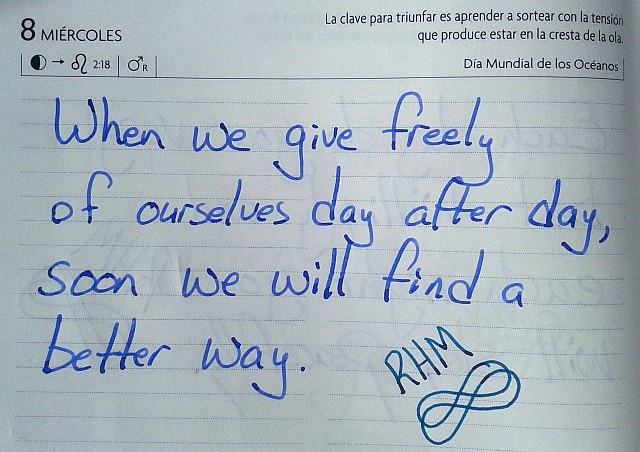 8 MIÉRCOLES
La clave para triunfar es aprender a sortear con la tensión
que produce estar en la cresta de la ola.
◐ → ♌ 2:18 ♂R
Día Mundial de los Océanos
When we give freely
of ourselves day after day,
soon we will find a
better way.
RHM